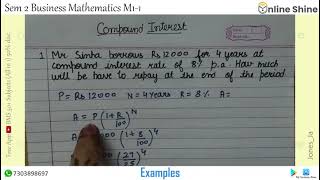 Sem 2 Business Mathematics M1-1
Online Shine
Compound Interest
1 Mr. Sinha borrows Rs 12000 for 4 years at
compound interest rate of 8% p.a. How much
will be have to repay at the end of the period
P = Rs 12000 N = 4 years R = 8% A =
A = P (1+R/100)^N
A = 000 (1+8/100)^4
(27/25)^4
7303898697
Examples
Jones_la